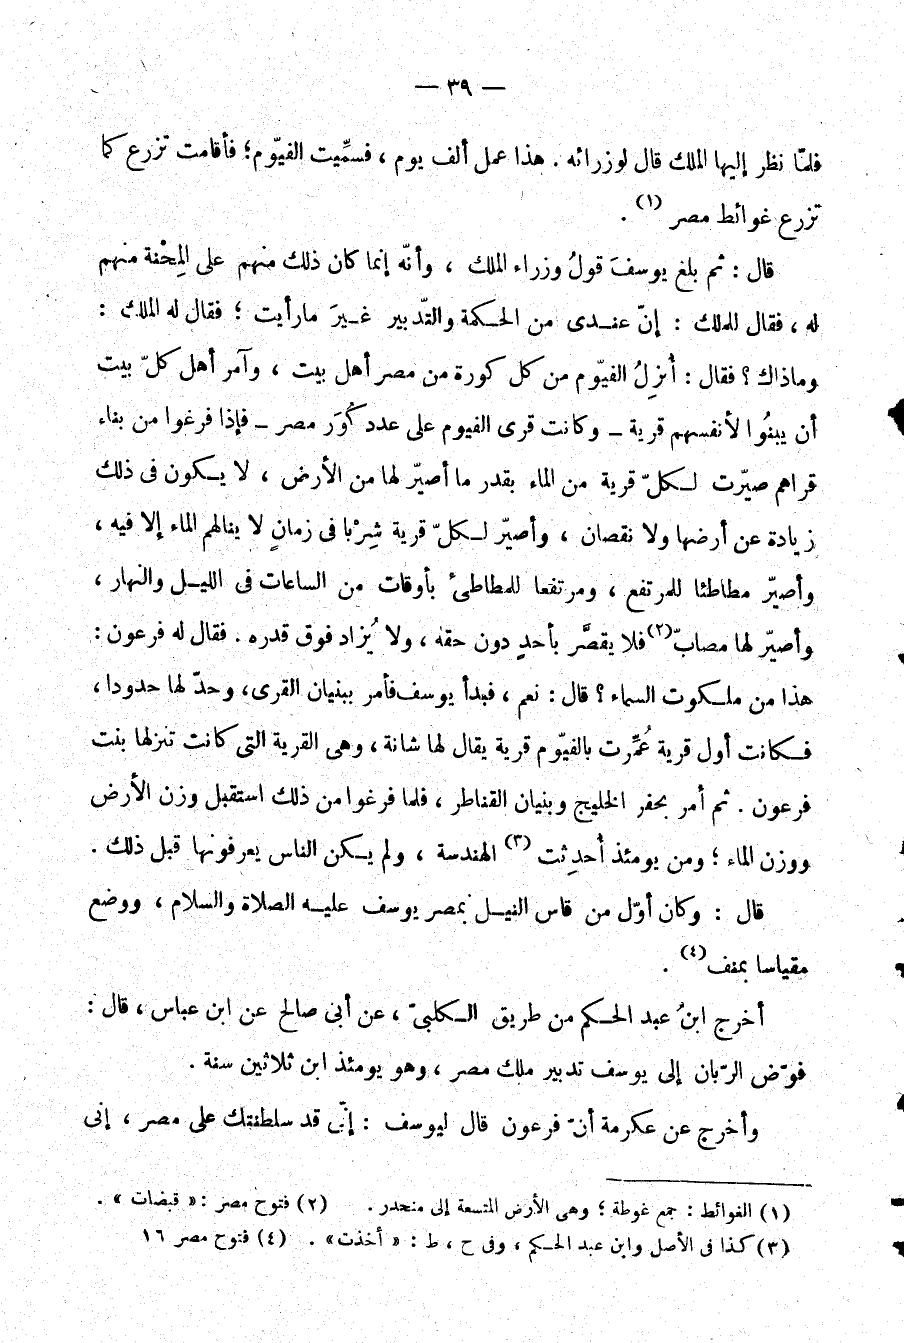 — ٣٩ —
فلمّا نظر إليها الملك قال لوزرائه . هذا عمل ألف يوم ، فسمِّيت الفيّوم؛ فأقامت تزرع كما
تزرع غوائط مصر (١) .
قال : ثم بلغ يوسفَ قولُ وزراء الملك ، وأنّه إنما كان ذلك منهم على المِحْنة منهم
له ، فقال للملك : إنّ عنـدى من الحـكمة والتّدبير غـيرَ مارأيت ؛ فقال له الملك :
وماذاك ؟ فقال : أنزِلُ الفيّوم من كل كورة من مصر أهل بيت ، وآمر أهل كلّ بيت
أن يبنُوا لأنفسهم قرية ــ وكانت قرى الفيوم على عدد كُوَر مصر ــ فإذا فرغوا من بناء
قراهم صيّرت لـكلّ قرية من الماء بقدر ما أصيّر لها من الأرض ، لا يـكون فى ذلك
زيادة عن أرضها ولا نقصان ، وأصيّر لـكلّ قرية شِرْبا فى زمانٍ لا ينالهم الماء إلا فيه ،
وأصيّر مطاطئا للمرتفع ، ومرتفعا للمطاطئ بأوقات من الساعات فى الليـل والنهار ،
وأصيّر لها مصابّ(٢) فلا يقصَّر بأحدٍ دون حقه ، ولا يُزاد فوق قدره . فقال له فرعون :
هذا من ملـكوت السماء ؟ قال : نعم ، فبدأ يوسف فأمر ببنيان القرى، وحدّ لها حدودا،
فـكانت أول قرية عُمِّرت بالفيّوم قرية يقال لها شانة ، وهى القرية التى كانت تنزلها بنت
فرعون . ثم أمر بحفر الخليج وبنيان القناطر ، فلما فرغوا من ذلك استقبل وزن الأرض
ووزن الماء ؛ ومن يومئذ أُحدِثت (٣) الهندسة ، ولم يـكن الناس يعرفونها قبل ذلك .
قال : وكان أوّل من قاس النيـل بمصر يوسف عليـه الصلاة والسلام ، ووضع
مقياسا بمنف(٤) .
أخرج ابنُ عبد الحـكم من طريق الـكلبىّ ، عن أبى صالح عن ابن عباس ، قال :
فوّض الرّيان إلى يوسف تدبير ملك مصر ، وهو يومئذ ابن ثلاثين سنة .
وأخرج عن عكرمة أنّ فرعون قال ليوسف : إنّى قد سلطتك على مصر ، إنى
(١) الغوائط : جمع غوطة ؛ وهى الأرض المتسعة إلى منحدر . (٢) فتوح مصر : « قبضات » .
(٣) كذا فى الأصل وابن عبد الحـكم ، وفى ح ، ط : « أخذت» . (٤) فتوح مصر ١٦